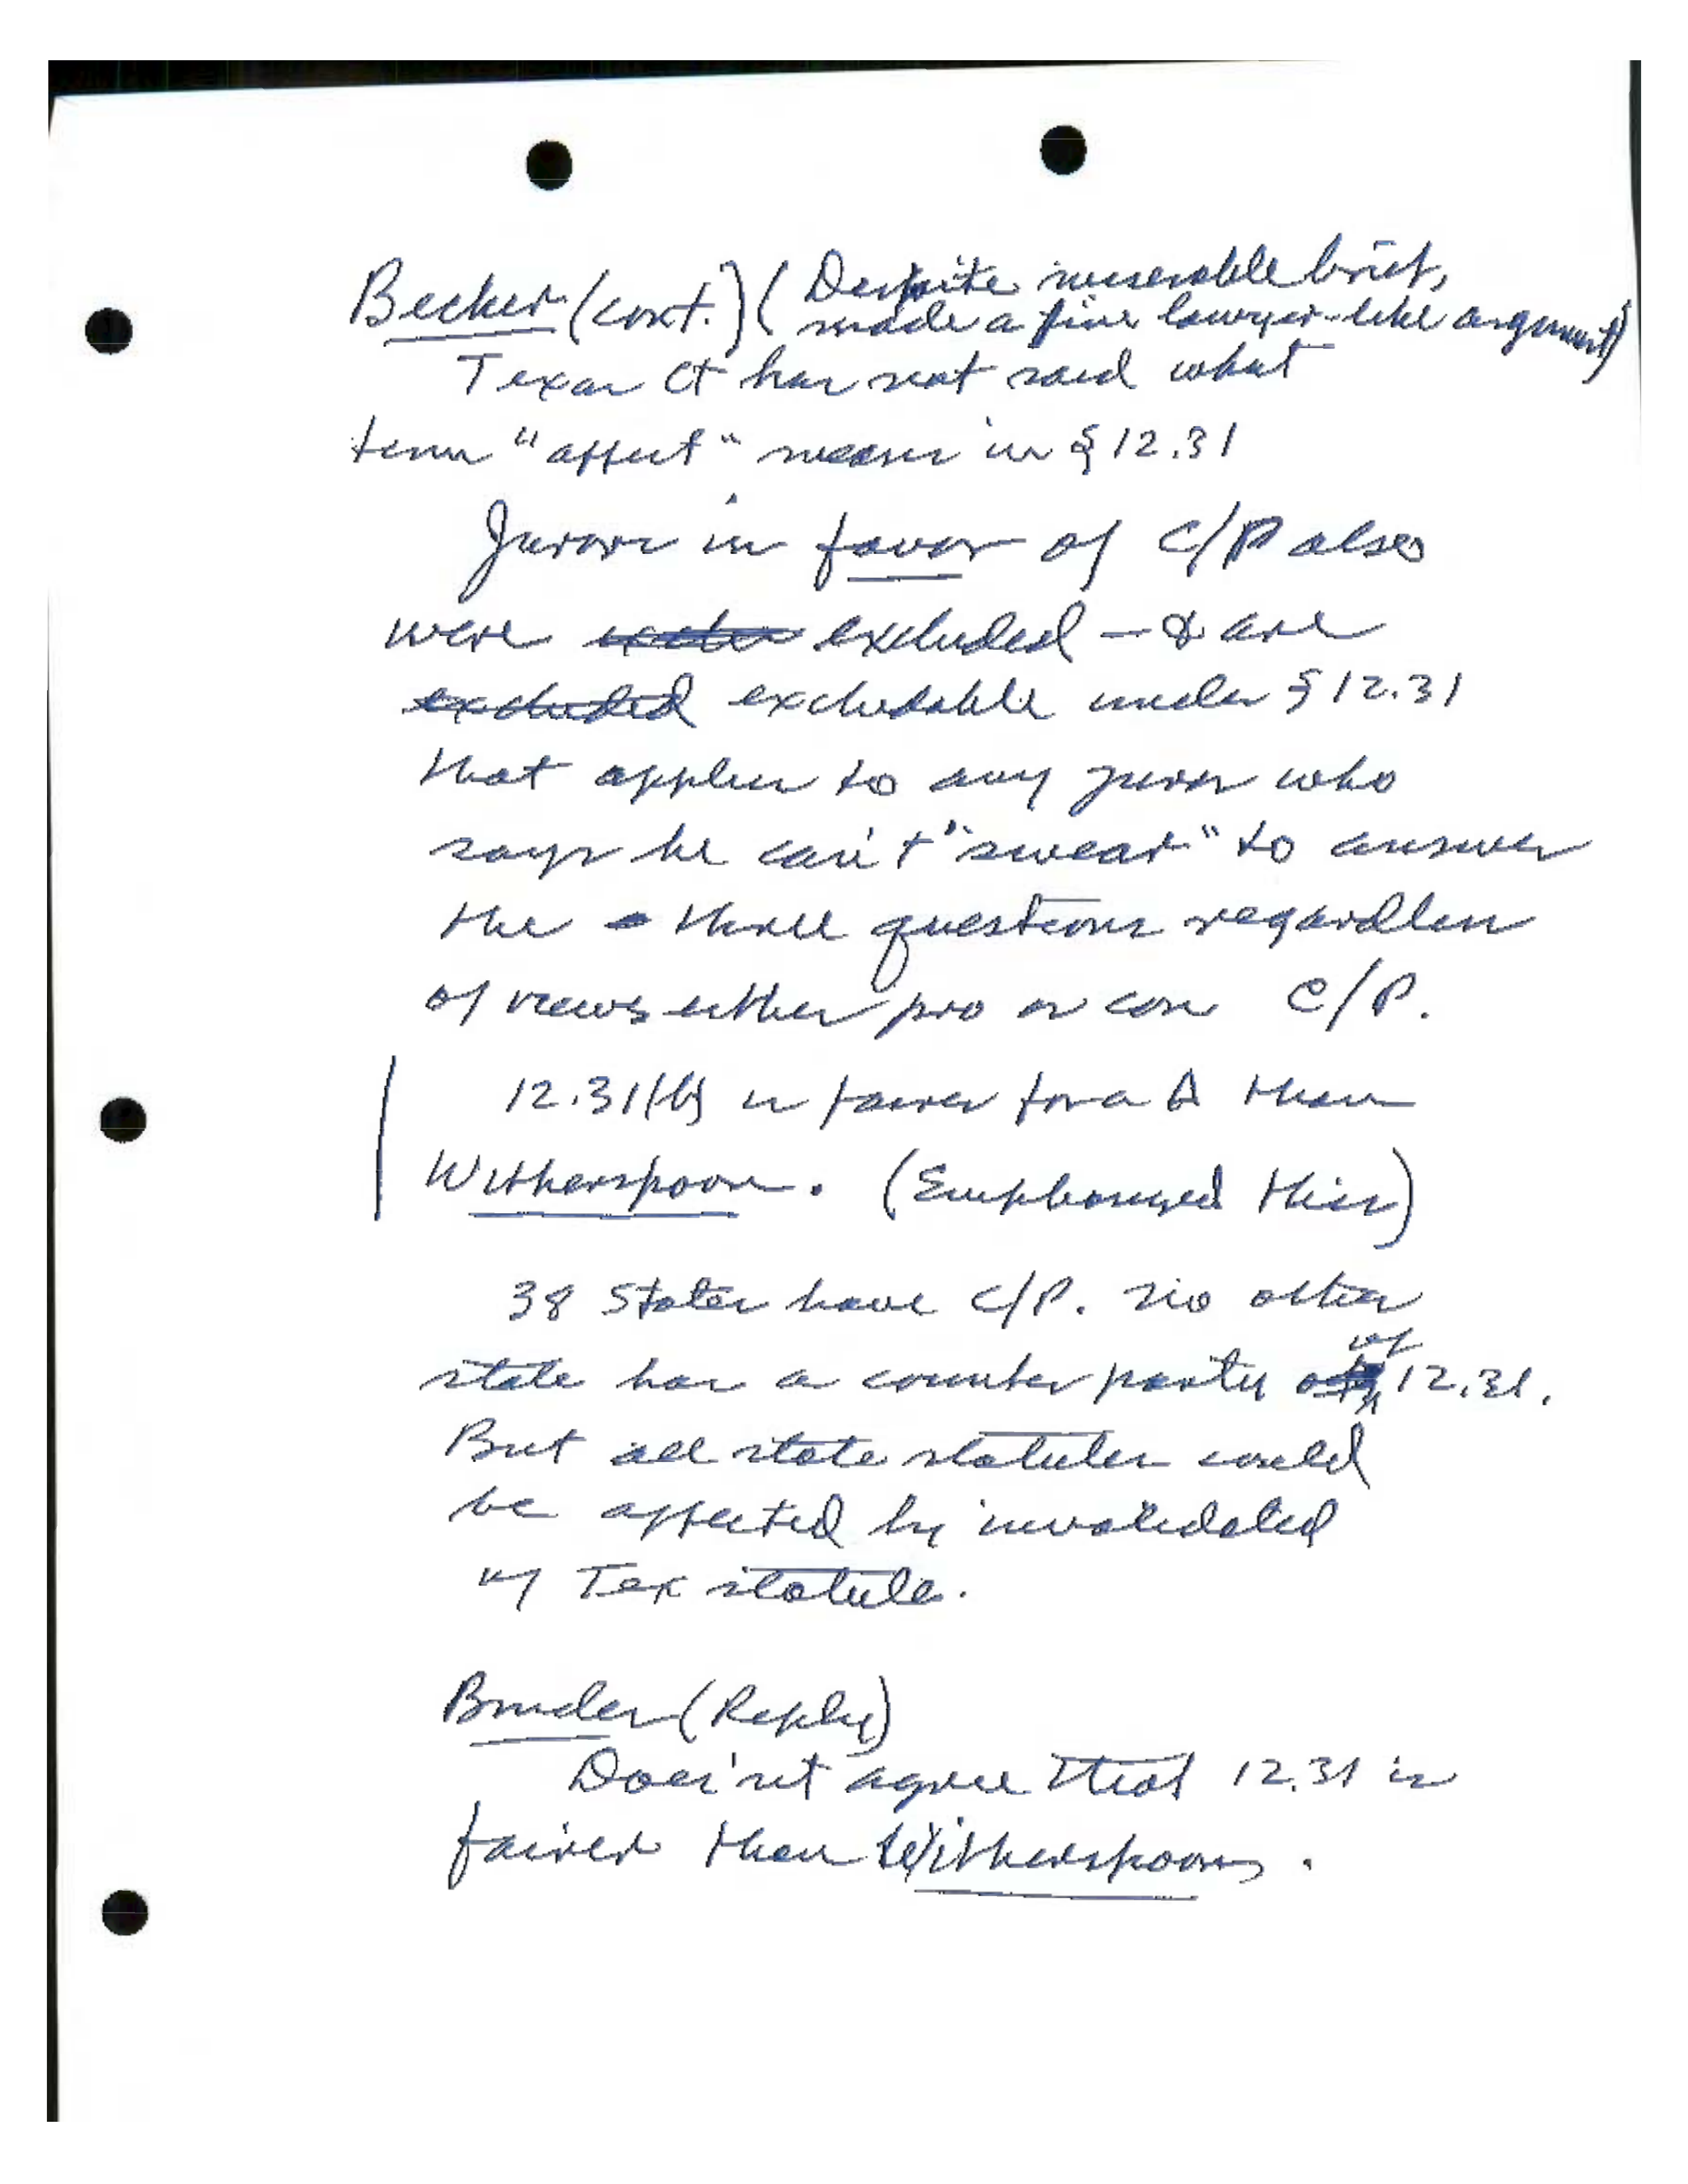 Becker (cont.) (Despite miserable brief,
made a fine lawyer-like argument)
Texas Ct has not said what
term "affect" means in § 12.31
Jurors in favor of C/P also
were excluded - & are
excluded excludable under § 12.31
that applies to any juror who
says he can't "swear" to answer
the three questions regardless
of views either pro or con C/P.
12.31(b) is fairer for a Δ than
Witherspoon. (Emphasized this)
38 States have C/P. No other
state has a counter party of 12.31.
But all state statutes could
be affected by invalidated
of Tex statute.
Bruder (Reply)
Does'nt agree that 12.31 is
fairer than Witherspoon.